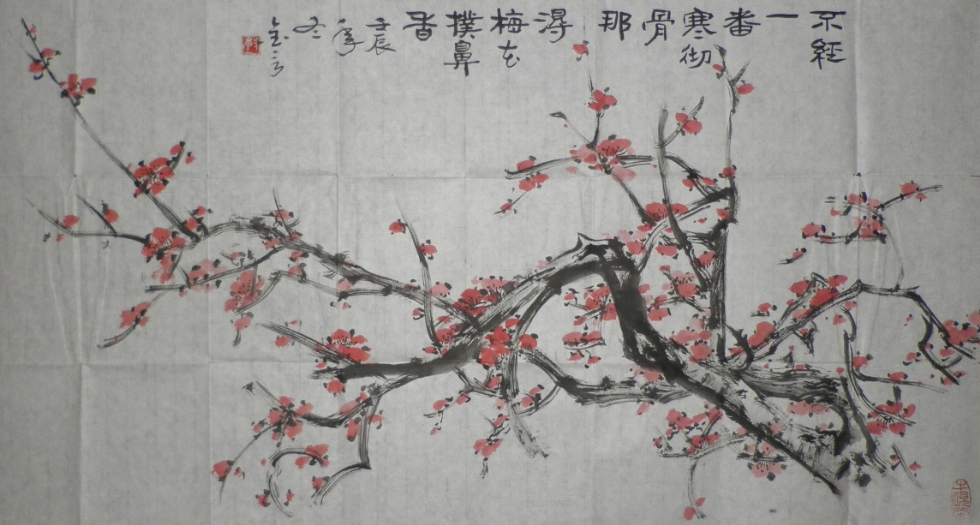 不經
一
番
寒彻
骨
那
得
梅花
撲鼻
香
壬辰
年
冬